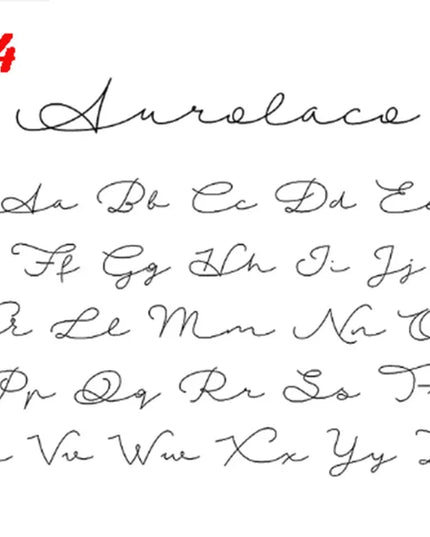 4
Aurolaco
Aa Bb Cc Dd Ee
Ff Gg Hh Ii Jj
Ll Mm Nn O
Pp Qq Rr Ss T
Vv Ww Xx Yy